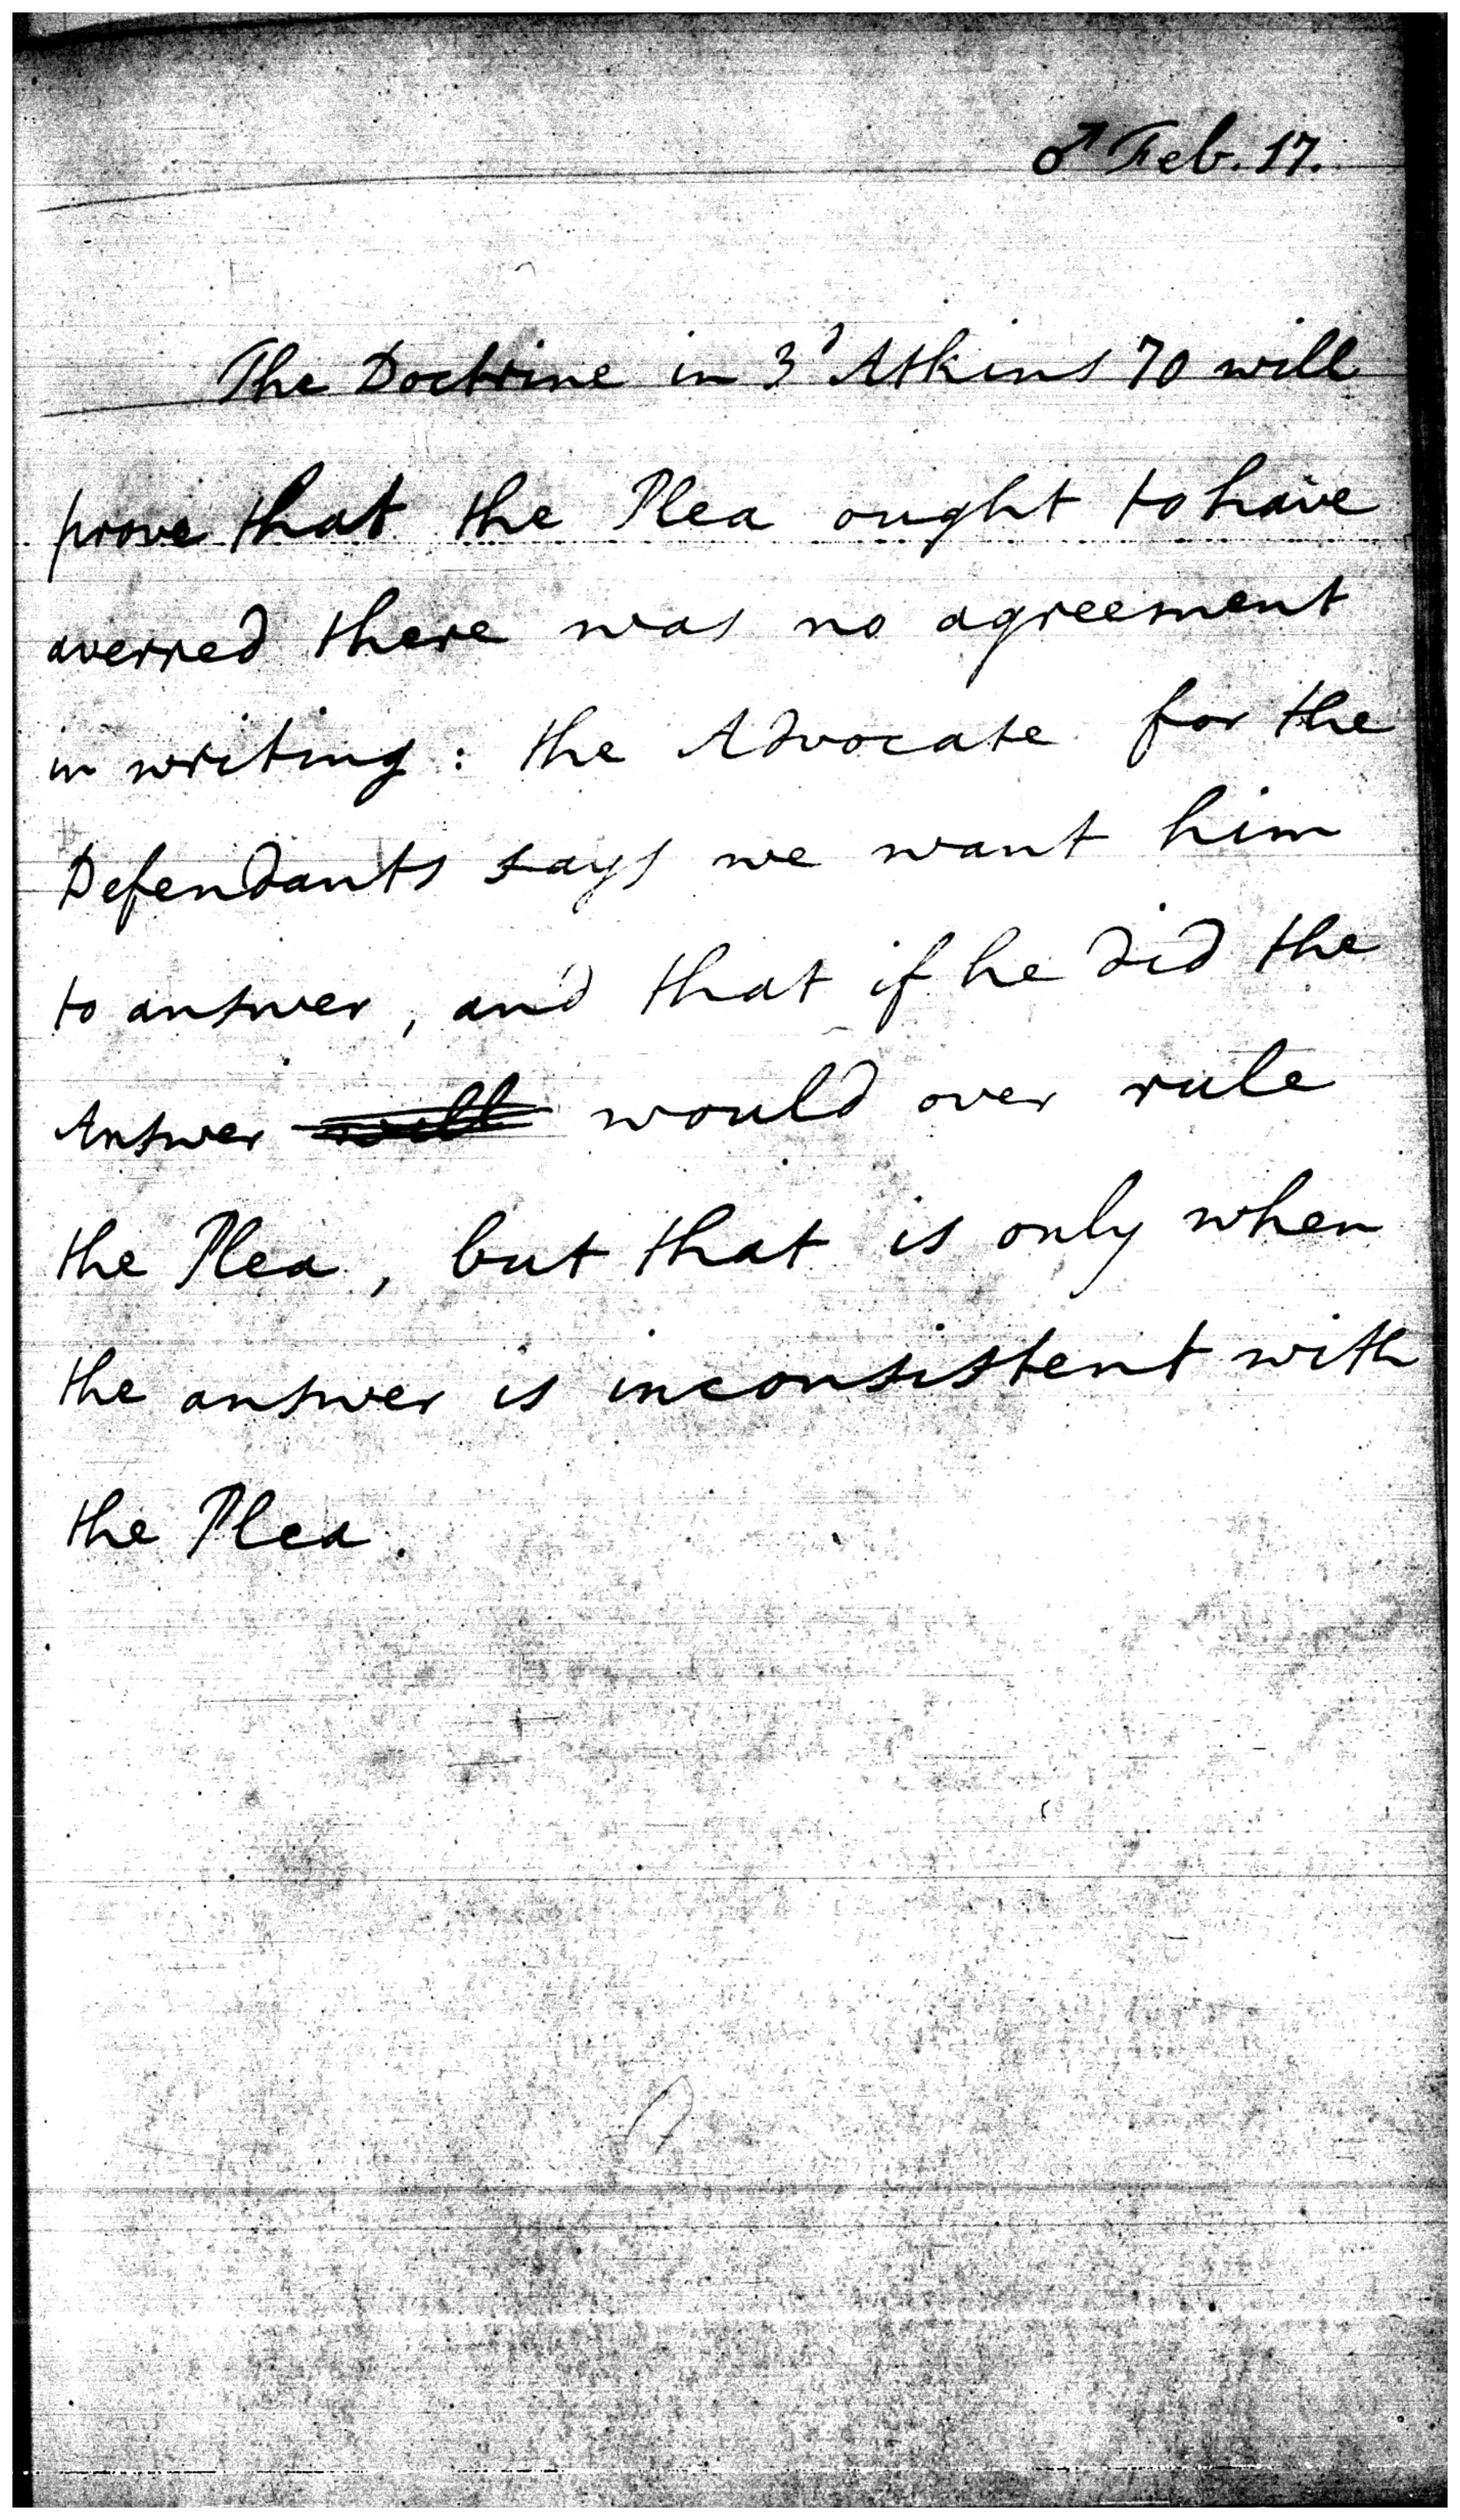 ♂ Feb. 17.
The Doctrine in 3d Atkins 70 will
prove that the Plea ought to have
averred there was no agreement
in writing : the Advocate for the
Defendants says we want him
to answer, and that if he did the
Answer will would over rule
the Plea, but that is only when
the answer is inconsistent with
the Plea.